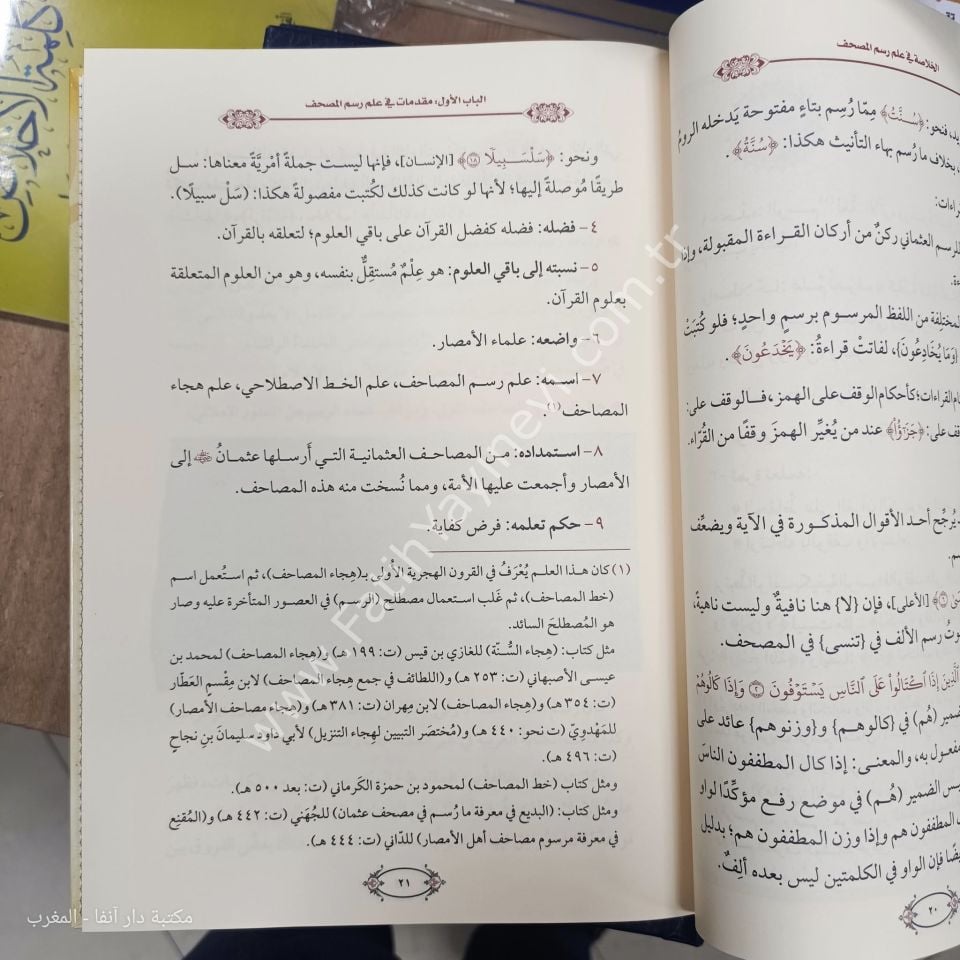 الخلاصة في علم رسم المصحف
فنحو: ﴿سُنَّتُ﴾ مِمّا رُسِم بتاءٍ مفتوحة يَدخله الرومُ
بخلاف ما رُسم بهاء التأنيث هكذا: ﴿سُنَّةُ﴾.
للرسم العثماني ركنٌ من أركان القراءة المقبولة، وإذا
المختلفة من اللفظ المرسوم برسمٍ واحدٍ؛ فلو كُتبَتْ
{وَمَا يُخَادِعُونَ}، لفاتتْ قراءةُ: ﴿يَخْدَعُونَ﴾.
القراءات؛ كأحكام الوقف على الهمز، فالوقف على:
على: ﴿جَزَٰٓؤُاْ﴾ عند من يُغيِّر الهمزَ وقفًا من القُرَّاء.
يُرجِّح أحد الأقوال المذكورة في الآية ويضعِّف
[الأعلى]، فإن {لا} هنا نافيةٌ وليست ناهيةً،
رسم الألف في {تنسى} في المصحف.
ٱلَّذِينَ إِذَا ٱكۡتَالُواْ عَلَى ٱلنَّاسِ يَسۡتَوۡفُونَ ٢ وَإِذَا كَالُوهُمۡ
{هُم} في {كالوهم} و{وزنوهم} عائد على
مفعول به، والمعنى: إذا كال المطففون الناسَ
الضمير {هُم} في موضع رفع مؤكِّدًا لواو
المطففون هم وإذا وزن المطففون هم؛ بدليل
فإن الواو في الكلمتين ليس بعده ألِفٌ.
٢٠
الباب الأول: مقدمات في علم رسم المصحف
ونحو: ﴿سَلْسَبِيلًا ١٨﴾ [الإنسان]، فإنها ليست جملةً أمْرِيَّةً معناها: سل
طريقًا مُوصلة إليها؛ لأنها لو كانت كذلك لكُتبت مفصولةً هكذا: (سَلْ سبيلًا).
٤- فضله: فضله كفضل القرآن على باقي العلوم؛ لتعلقه بالقرآن.
٥- نسبته إلى باقي العلوم: هو عِلْمٌ مُستقِلٌّ بنفسه، وهو من العلوم المتعلقة
بعلوم القرآن.
٦- واضعه: علماء الأمصار.
٧- اسمه: علم رسم المصاحف، علم الخط الاصطلاحي، علم هجاء
المصاحف(١).
٨- استمداده: من المصاحف العثمانية التي أرسلها عثمانُ إلى
الأمصار وأجمعت عليها الأمة، ومما نُسخت منه هذه المصاحف.
٩- حكم تعلمه: فرض كفاية.
(١) كان هذا العلم يُعْرَفُ في القرون الهجرية الأُولى بـ(هِجاء المصاحف)، ثم استُعمل اسم
(خط المصاحف)، ثم غَلب استعمال مصطلح (الرسم) في العصور المتأخرة عليه وصار
هو المُصطلحَ السائد.
مثل كتاب: (هِجاء السُّنّة) للغازي بن قيس (ت: ١٩٩ هـ) و(هِجاء المصاحف) لمحمد بن
عيسى الأصبهاني (ت: ٢٥٣ هـ) و(اللطائف في جمع هِجاء المصاحف) لابن مِقْسمٍ العَطّار
(ت: ٣٥٤ هـ) و(هِجاء المصاحف) لابن مِهران (ت: ٣٨١ هـ) و(هجاء مصاحف الأمصار)
للمَهْدويّ (ت نحو: ٤٤٠ هـ) و(مُختصَر التبيين لهِجاء التنزيل) لأبي داود سليمانَ بنِ نجاح
(ت: ٤٩٦ هـ).
ومثل كتاب (خط المصاحف) لمحمود بن حمزة الكَرماني (ت: بعد ٥٠٠ هـ).
ومثل كتاب: (البديع في معرفة ما رُسم في مصحف عثمان) للجُهَني (ت: ٤٤٢ هـ) و(المُقنِع
في معرفة مرسوم مصاحف أهل الأمصار) للدّاني (ت: ٤٤٤ هـ).
٢١
www.FatihYayinevi.com.tr
مكتبة دار آنفا - المغرب